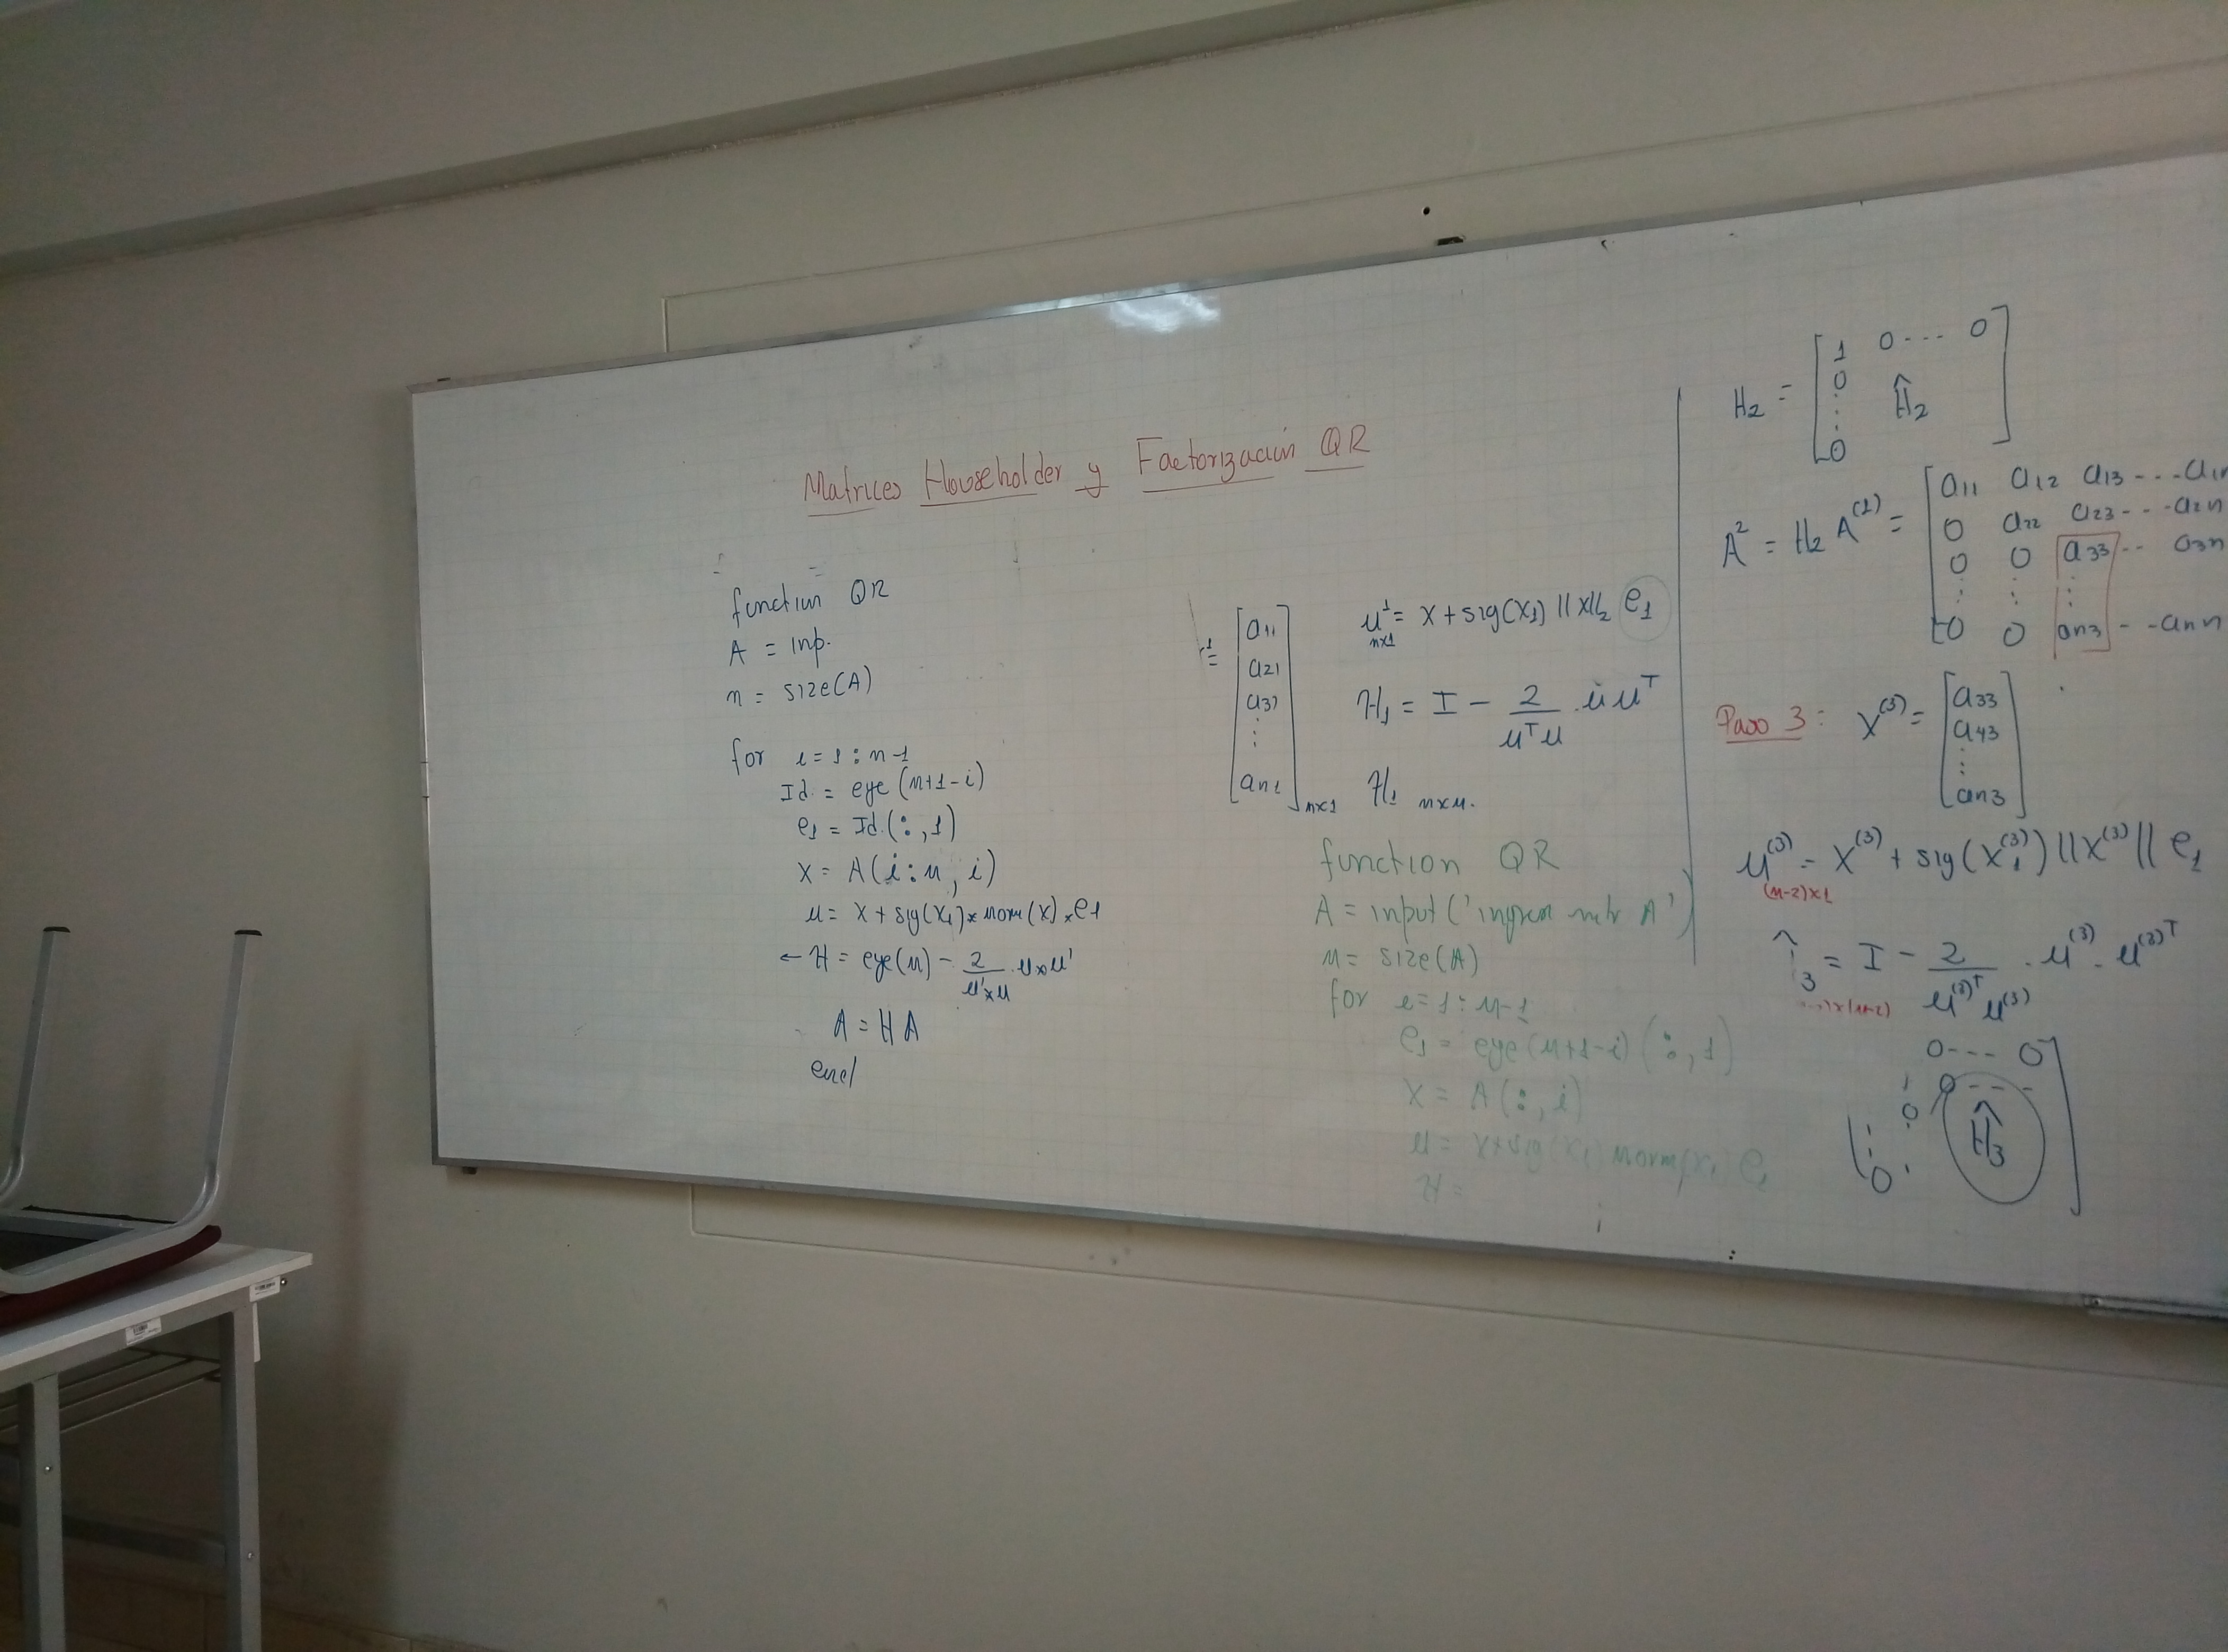 Matrices Householder y Factorización QR
function QR
A = inp.
n = size(A)
for i = 1 : n-1
Id. = eye (n+1-i)
e₁ = Id.(:,1)
x = A(i:n, i)
u = x + sig(x₁) * norm(x) * e₁
← H = eye(n) - 2/(u'*u) . u*u'
A = H A
end
[a₁₁ a₂₁ a₃₁ ⋮ aₙ₁] nx1
u¹ = x + sig(x₁) ||x||₂ e₁
nx1
H₁ = I - 2/(uᵀu) . u uᵀ
H₁ nxn.
function QR
A = input('
n = size(A)
for i = 1 : n-1
e₁ = eye(n+1-i) (:,1)
x = A(:,i)
u = x+sig(x₁) norm(x) e₁
H =
H₂ = [1 0 --- 0
0 Ĥ₂
⋮
0]
A² = H₂ A⁽¹⁾ = [a₁₁ a₁₂ a₁₃ --- a₁ₙ
0 a₂₂ a₂₃ --- a₂ₙ
0 0 a₃₃ -- a₃ₙ
⋮ ⋮ ⋮
0 0 aₙ₃ -- aₙₙ
Paso 3: x⁽³⁾ = [a₃₃ a₄₃ ⋮ aₙ₃]
u⁽³⁾ = x⁽³⁾ + sig(x₁⁽³⁾) ||x⁽³⁾|| e₁
(n-2)x1
₃ = I - 2/(u⁽³⁾ᵀ u⁽³⁾) . u⁽³⁾ . u⁽³⁾ᵀ
x(n-2)
0 --- 0
0 ---
0 Ĥ₃
0